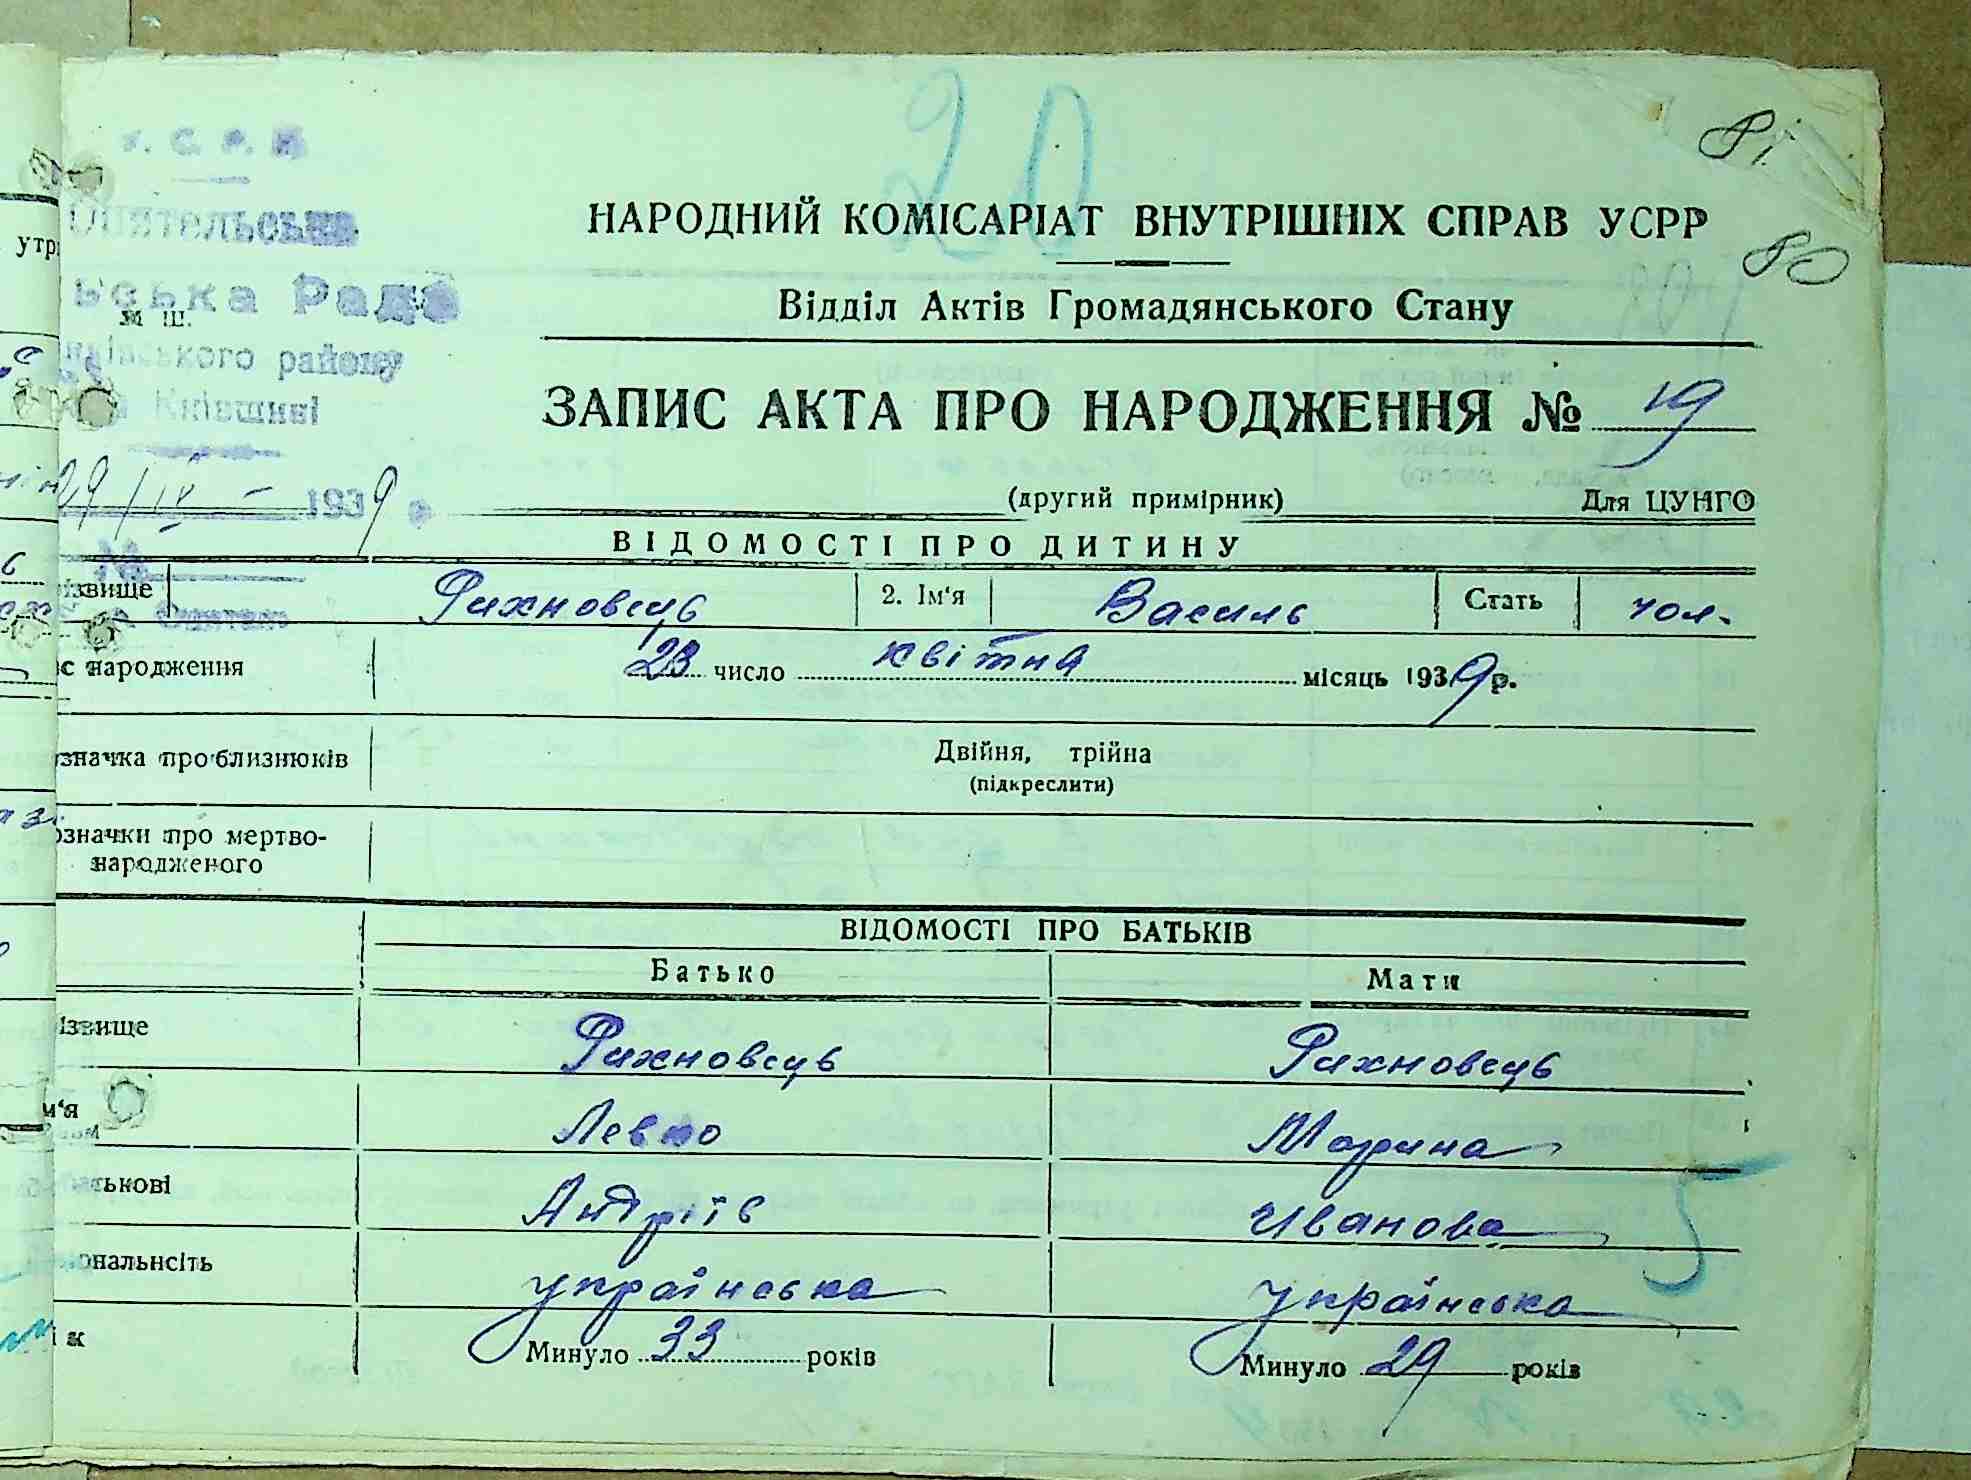 У. С. Р. Р.
ська Рада
м ш.
ківського району
на Київщині
29/IV – 1939 р
№
20
81
80
НАРОДНИЙ КОМІСАРІАТ ВНУТРІШНІХ СПРАВ УСРР
Відділ Актів Громадянського Стану
ЗАПИС АКТА ПРО НАРОДЖЕННЯ № 19
(другий примірник) Для ЦУНГО
ВІДОМОСТІ ПРО ДИТИНУ
ізвище Рихновець 2. Ім'я Василь Стать чол.
с народження 23 число квітня місяць 1939 р.
значка про близнюків Двійня, трійна
(підкреслити)
означки про мертво-
народженого
ВІДОМОСТІ ПРО БАТЬКІВ
Батько Мати
ізвище Рихновець Рихновець
м'я Левко Марина
тькові Андріїв Иванова
ональність українська українська
ік Минуло 33 років Минуло 29 років
5